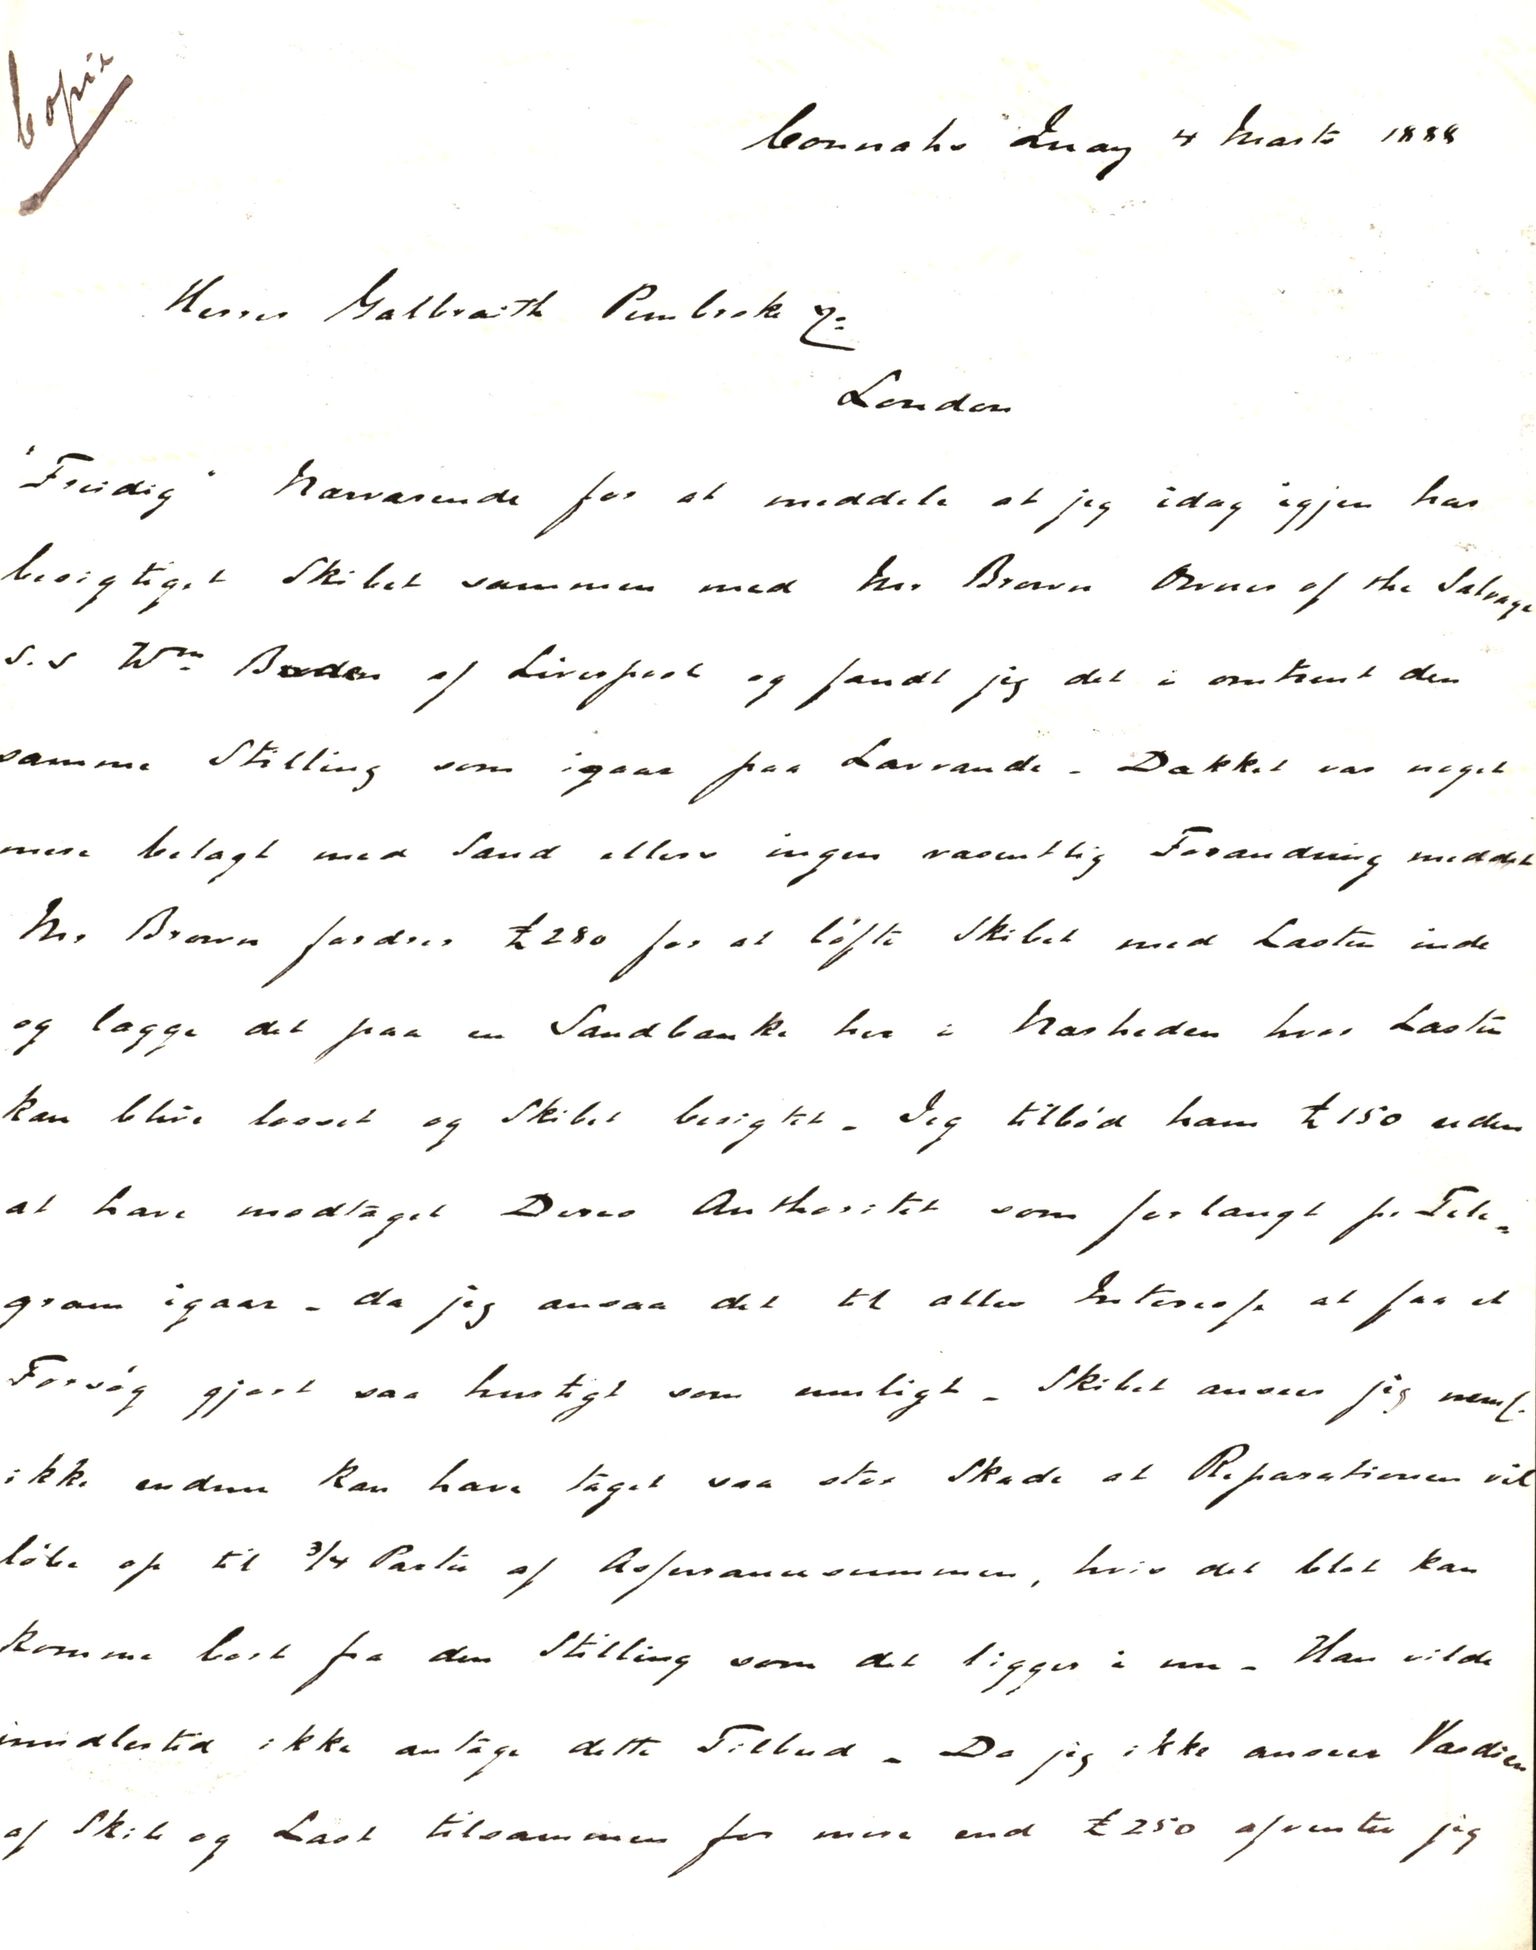 Copie
Connahs Quay 4 Marts 1888
Herrer Galbraith Pembroke & Co
London
"Freidig" Nærværende for at meddele at jeg idag igjen har
besigtiget Skibet sammen med Mr Brown Owner of the Salvage
S.S Wm of Liverpool og fandt jeg det i omtrent den
samme Stilling som igaar paa Lavvande - Dækket var noget
mere belagt med Sand ellers ingen væsentlig Forandring med det
Mr Brown fordrer £280 for at löfte Skibet med Lasten inde
og lægge det paa en Sandbanke her i Nærheden hvor Lasten
kan blive losset og Skibet besigtet - Jeg tilbød ham £150 uden
at have modtaget Deres Authoritet som forlangt pr Tele-
gram igaar - da jeg ansaa det til alles Interesse at faa et
Forsög gjort saa hurtigt som muligt - Skibet anseer jeg neml.
ikke endnu kan have taget saa stor Skade at Reparationen vil
löbe op til 3/4 Parten af Assurancesummen, hvis det blot kan
komme bort fra den Stilling som det ligger i nu - Han vilde
imidlertid ikke antage dette Tilbud - Da jeg ikke anseer Værdien
af Skib og Last tilsammen for mere end £250 afventer jeg